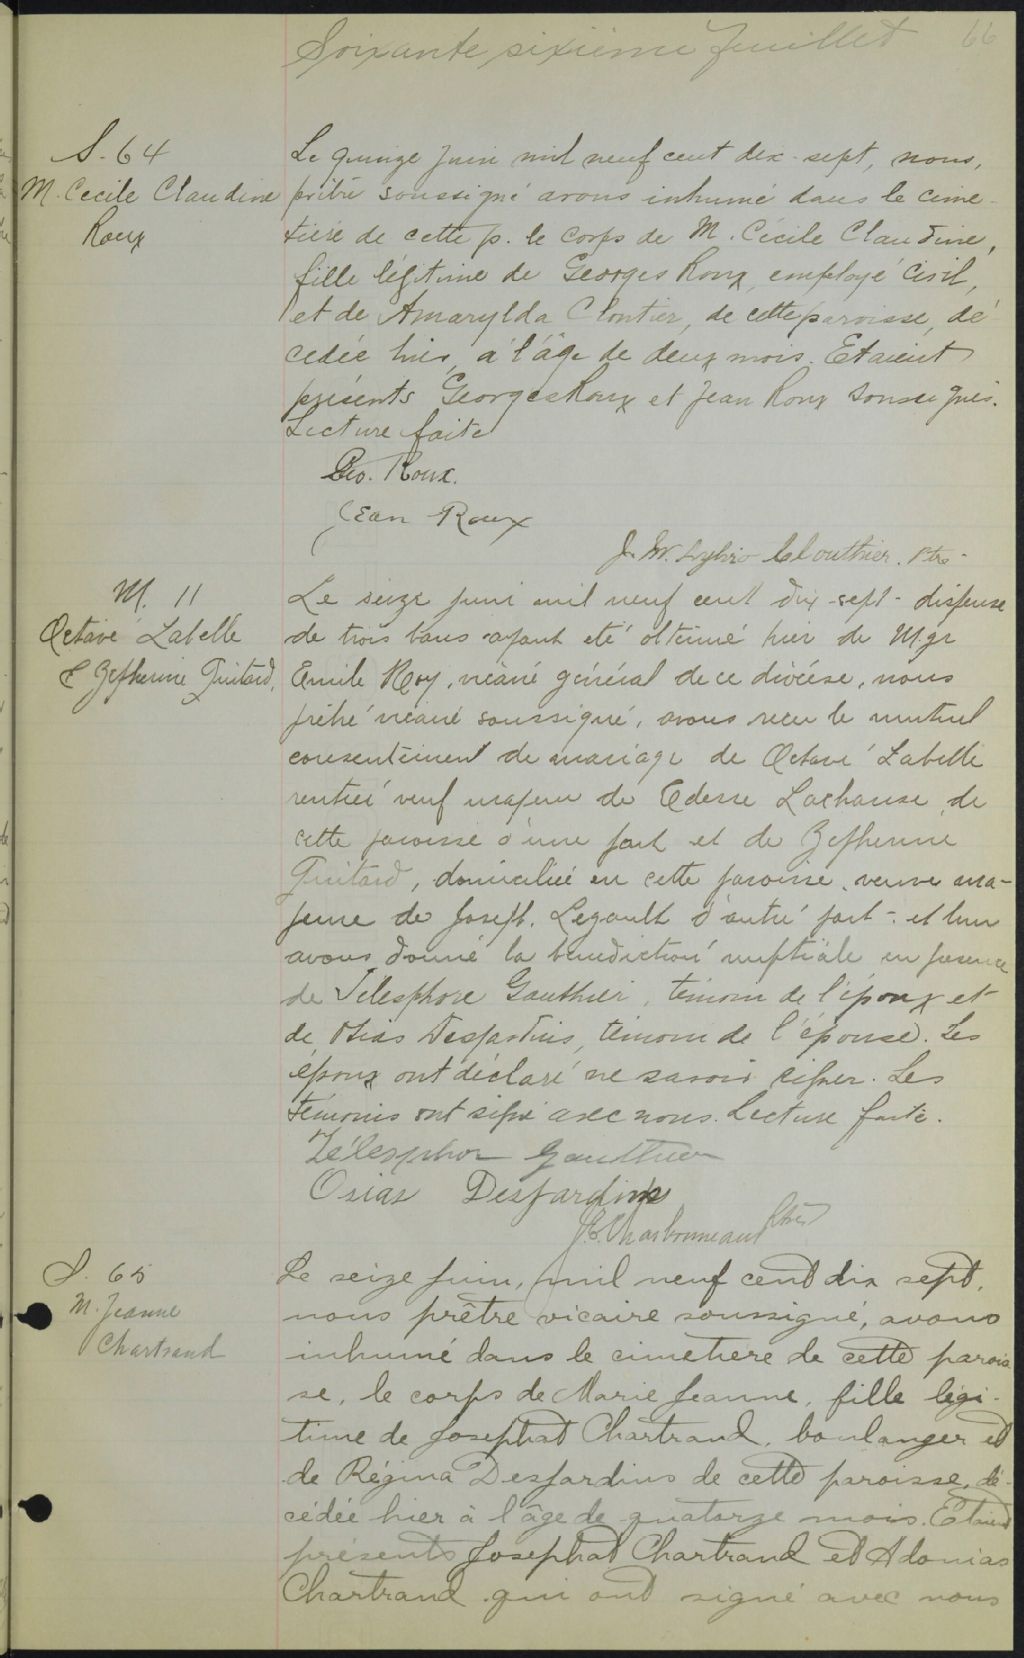 Soixante sixième feuillet 66
S. 64
M. Cecile Claudine
Roux
Le quinze juin mil neuf cent dix-sept, nous,
prêtre soussigné avons inhumé dans le cime-
tière de cette p. le corps de M. Cécile Claudine,
fille légitime de Georges Roux, employé civil,
et de Amarylda Cloutier, de cette paroisse, dé-
cedée hier, à l'âge de deux mois. Etaient
présents Georges Roux et Jean Roux soussignés.
Lecture faite
Geo. Roux.
Jean Roux
J. W. Clouthier. Ptre
M. 11
Octave Labelle
& Zepherine Guitard,
Le seize juin mil neuf cent dix-sept - dispense
de trois bans ayant été obtenue hier de Mgr
Emile Roy, vicaire général de ce diocèse, nous
prêtre vicaire soussigné, avons reçu le mutuel
consentement de mariage de Octave Labelle
rentier veuf majeur de Lachance de
cette paroisse d'une part et de Zepherine
Guitard, domiciliée en cette paroisse, veuve ma-
jeure de Joseph Legault d'autre part - et leur
avons donné la bénédiction nuptiale en présence
de Télesphore Gauthier, témoin de l'époux et
de Osias Desjardins, témoin de l'épouse. Les
époux ont déclaré ne savoir signer. Les
témoins ont signé avec nous. Lecture faite.
Télesphor Gauthier
Osias Desjardins
Charbonneau Ptre
S. 65
M. Jeanne
Chartrand
Le seize juin, mil neuf cent dix sept,
nous prêtre vicaire soussigné, avons
inhumé dans le cimetière de cette parois-
se, le corps de Marie Jeanne, fille légi-
time de Josephat Chartrand, boulanger et
de Régina Desjardins de cette paroisse, dé-
cédée hier à l'âge de quatorze mois. Etaient
présents Josephat Chartrand et Adonias
Chartrand qui ont signé avec nous